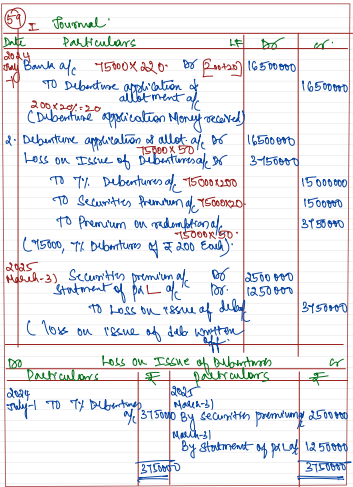 59 I Journal
Date Particulars LF Dr cr.
2024
July-1 Bank a/c 75000×220. Dr [200+20] 16500000
TO Debenture application &
allotment a/c 16500000
200×20%=20
(Debenture application Money received)
2. Debenture application & allot. a/c Dr 16500000
75000×50
Loss on Issue of Debentures a/c Dr 3750000
TO 7% Debentures a/c 75000×200 15000000
TO Securities Premium a/c 75000×20. 1500000
TO Premium on redemption a/c 3750000
75000×50.
(75000, 7% Debentures of ₹200 Each).
2025
March-31 Securities premium a/c Dr 2500000
Statment of P&L a/c Dr. 1250000
TO Loss on issue of deb a/c 3750000
( loss on issue of deb written
off.
Dr Loss on Issue of Debentures cr
Particulars ₹ Particulars ₹
2024 2025
July-1 TO 7% Debentures a/c 3750000 March-31
By securities premium a/c 2500000
March-31
By Statment of p&L a/c 1250000
3750000 3750000